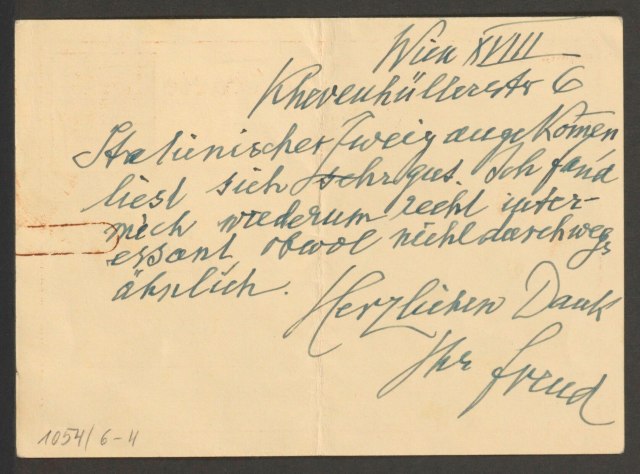 Wien XVIII
Khevenhüllerstr 6
Italienischer Zweig angekom̅en
liest sich sehr gut. Ich fand
mich wiederum recht inter-
essant obwol nicht durchwegs
ähnlich.
Herzlichen Dank
Ihr Freud
1054/6-4